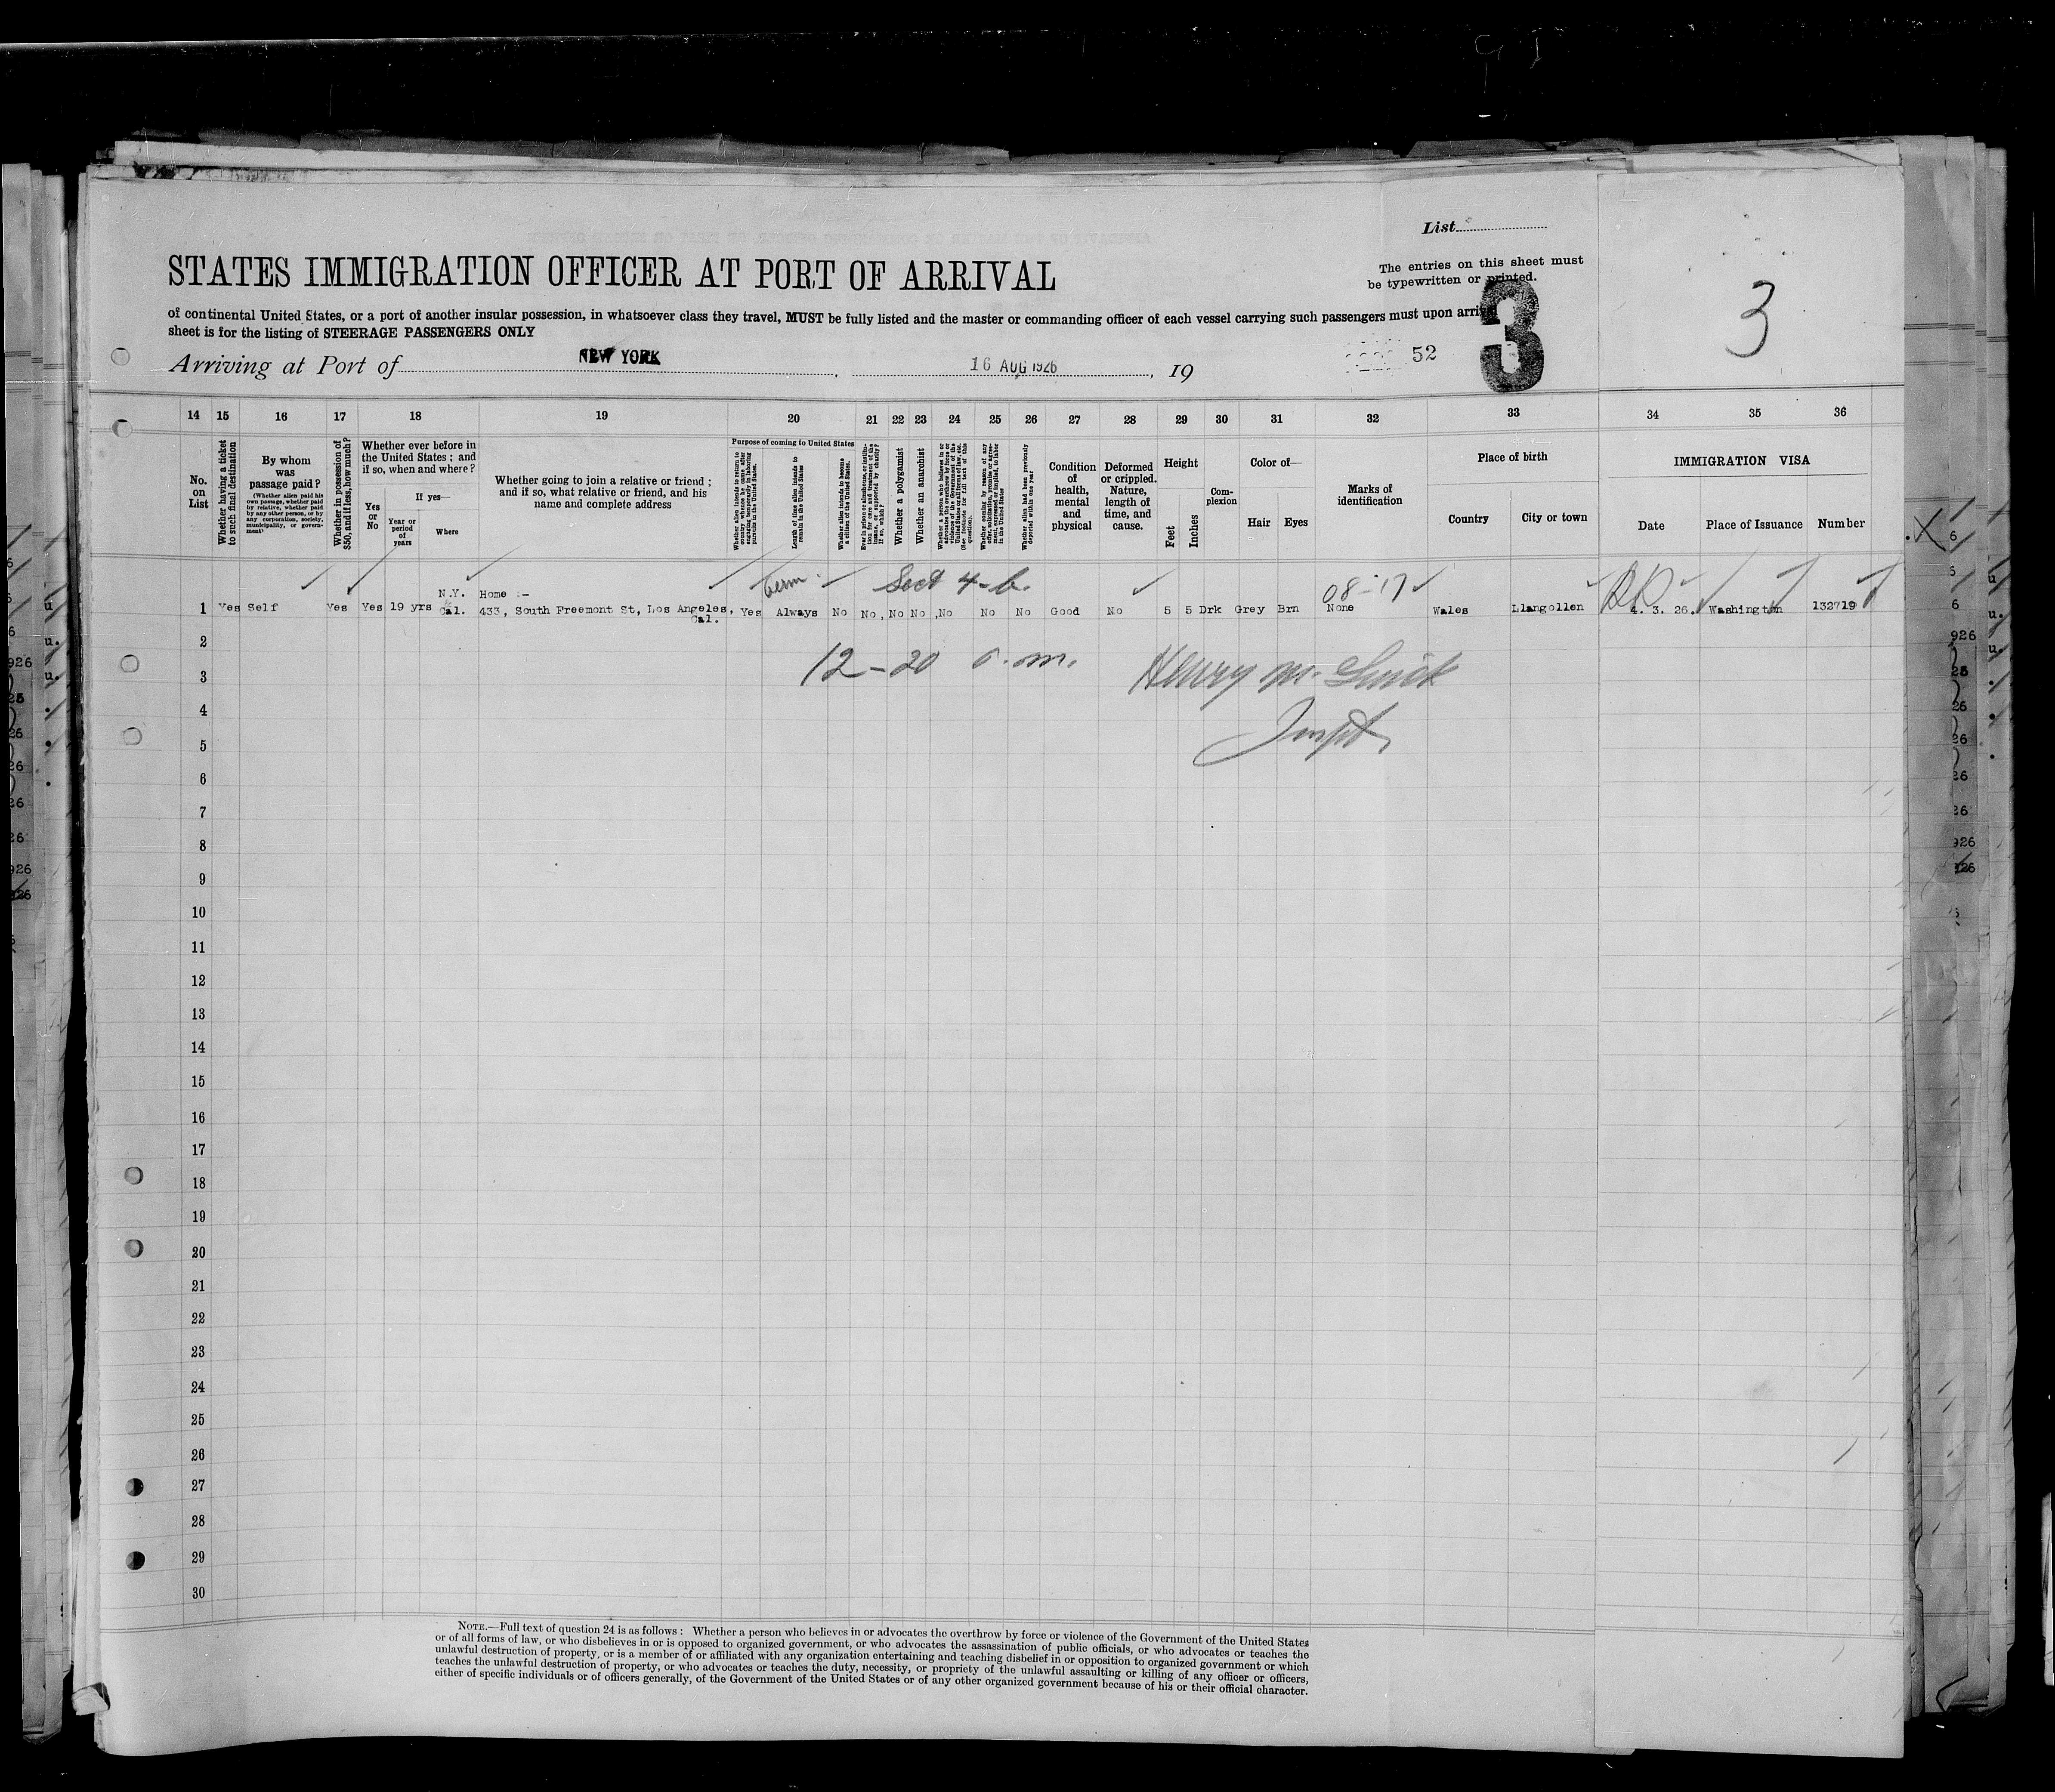 List
STATES IMMIGRATION OFFICER AT PORT OF ARRIVAL
The entries on this sheet must
be typewritten or printed.
of continental United States, or a port of another insular possession, in whatsoever class they travel, MUST be fully listed and the master or commanding officer of each vessel carrying such passengers must upon arrival
sheet is for the listing of STEERAGE PASSENGERS ONLY
Arriving at Port of NEW YORK, 16 AUG 1926, 19
52
3
3
14 15 16 17 18 19 20 21 22 23 24 25 26 27 28 29 30 31 32 33 34 35 36
No. on List
Whether having a ticket to such final destination
By whom was passage paid?
(Whether alien paid his own passage, whether paid by relative, whether paid by any other person, or by any corporation, society, municipality, or government)
Whether in possession of $50, and if less, how much?
Whether ever before in the United States; and if so, when and where?
Yes or No
If yes—
Year or period of years
Where
Whether going to join a relative or friend; and if so, what relative or friend, and his name and complete address
Purpose of coming to United States
Whether alien intends to return to country whence he came after engaging temporarily in laboring pursuits in the United States.
Length of time alien intends to remain in the United States
Whether alien intends to become a citizen of the United States.
Ever in prison or almshouse, or institution for care and treatment of the insane, or supported by charity? If so, which?
Whether a polygamist
Whether an anarchist
Whether a person who believes in or advocates the overthrow by force or violence of the Government of the United States or all forms of law, &c. (See footnote for full text of this question).
Whether coming by reason of any offer, solicitation, promise or agreement, expressed or implied, to labor in the United States
Whether alien had been previously deported within one year
Condition of health, mental and physical
Deformed or crippled. Nature, length of time, and cause.
Height
Feet
Inches
Complexion
Color of—
Hair
Eyes
Marks of identification
Place of birth
Country
City or town
IMMIGRATION VISA
Date
Place of Issuance
Number
Sect 4-b.
08-17
N.Y. Home :-
1 Yes Self Yes Yes 19 yrs Cal. 433, South Freemont St, Los Angeles, Yes Always No No, No No, No No No Good No 5 5 Drk Grey Brn None Wales Llangollen 4. 3. 26. Washington 132719
Cal.
2
12-20 a.m.
3
4
5
6
7
8
9
10
11
12
13
14
15
16
17
18
19
20
21
22
23
24
25
26
27
28
29
30
NOTE.—Full text of question 24 is as follows: Whether a person who believes in or advocates the overthrow by force or violence of the Government of the United States
or of all forms of law, or who disbelieves in or is opposed to organized government, or who advocates the assassination of public officials, or who advocates or teaches the
unlawful destruction of property, or is a member of or affiliated with any organization entertaining and teaching disbelief in or opposition to organized government or which
teaches the unlawful destruction of property, or who advocates or teaches the duty, necessity, or propriety of the unlawful assaulting or killing of any officer or officers,
either of specific individuals or of officers generally, of the Government of the United States or of any other organized government because of his or their official character.